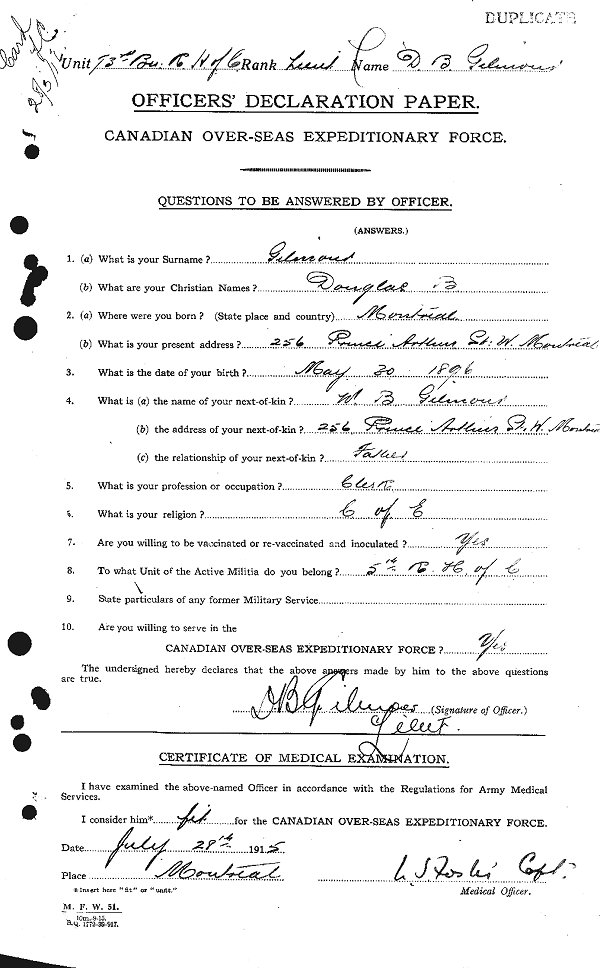 DUPLICATE
Card
Unit 73rd Bn. R H of C Rank Lieut Name D. B. Gilmour
OFFICERS' DECLARATION PAPER.
CANADIAN OVER-SEAS EXPEDITIONARY FORCE.
QUESTIONS TO BE ANSWERED BY OFFICER.
(ANSWERS.)
1. (a) What is your Surname? Gilmour
(b) What are your Christian Names? Douglas B
2. (a) Where were you born? (State place and country) Montreal
(b) What is your present address? 256 Prince Arthur St. W. Montreal
3. What is the date of your birth? May 30 1896
4. What is (a) the name of your next-of-kin? W B Gilmour
(b) the address of your next-of-kin? 256 Prince Arthur St. W Montreal
(c) the relationship of your next-of-kin? Father
5. What is your profession or occupation? Clerk
6. What is your religion? C of E
7. Are you willing to be vaccinated or re-vaccinated and inoculated? Yes
8. To what Unit of the Active Militia do you belong? 5th R. H. of C
9. State particulars of any former Military Service
10. Are you willing to serve in the
CANADIAN OVER-SEAS EXPEDITIONARY FORCE? Yes
The undersigned hereby declares that the above answers made by him to the above questions
are true.
DB Gilmour (Signature of Officer.)
Lieut.
CERTIFICATE OF MEDICAL EXAMINATION.
I have examined the above-named Officer in accordance with the Regulations for Army Medical
Services.
I consider him* fit for the CANADIAN OVER-SEAS EXPEDITIONARY FORCE.
Date July 28th 1915
Place Montreal Capt.
Medical Officer.
*Insert here "fit" or "unfit."
M. F. W. 51.
10m.-8-15.
H.Q. 1772-39-917.